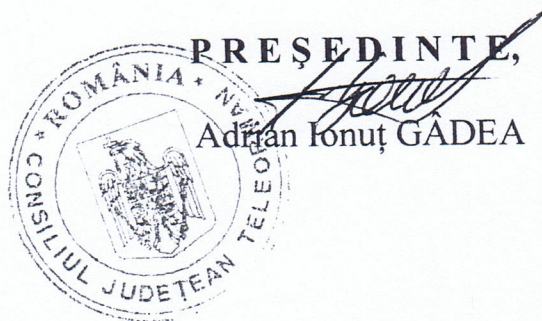 PREŞEDINTE,
Adrian Ionuţ GÂDEA
* ROMÂNIA *
CONSILIUL JUDEŢEAN TELEORMAN